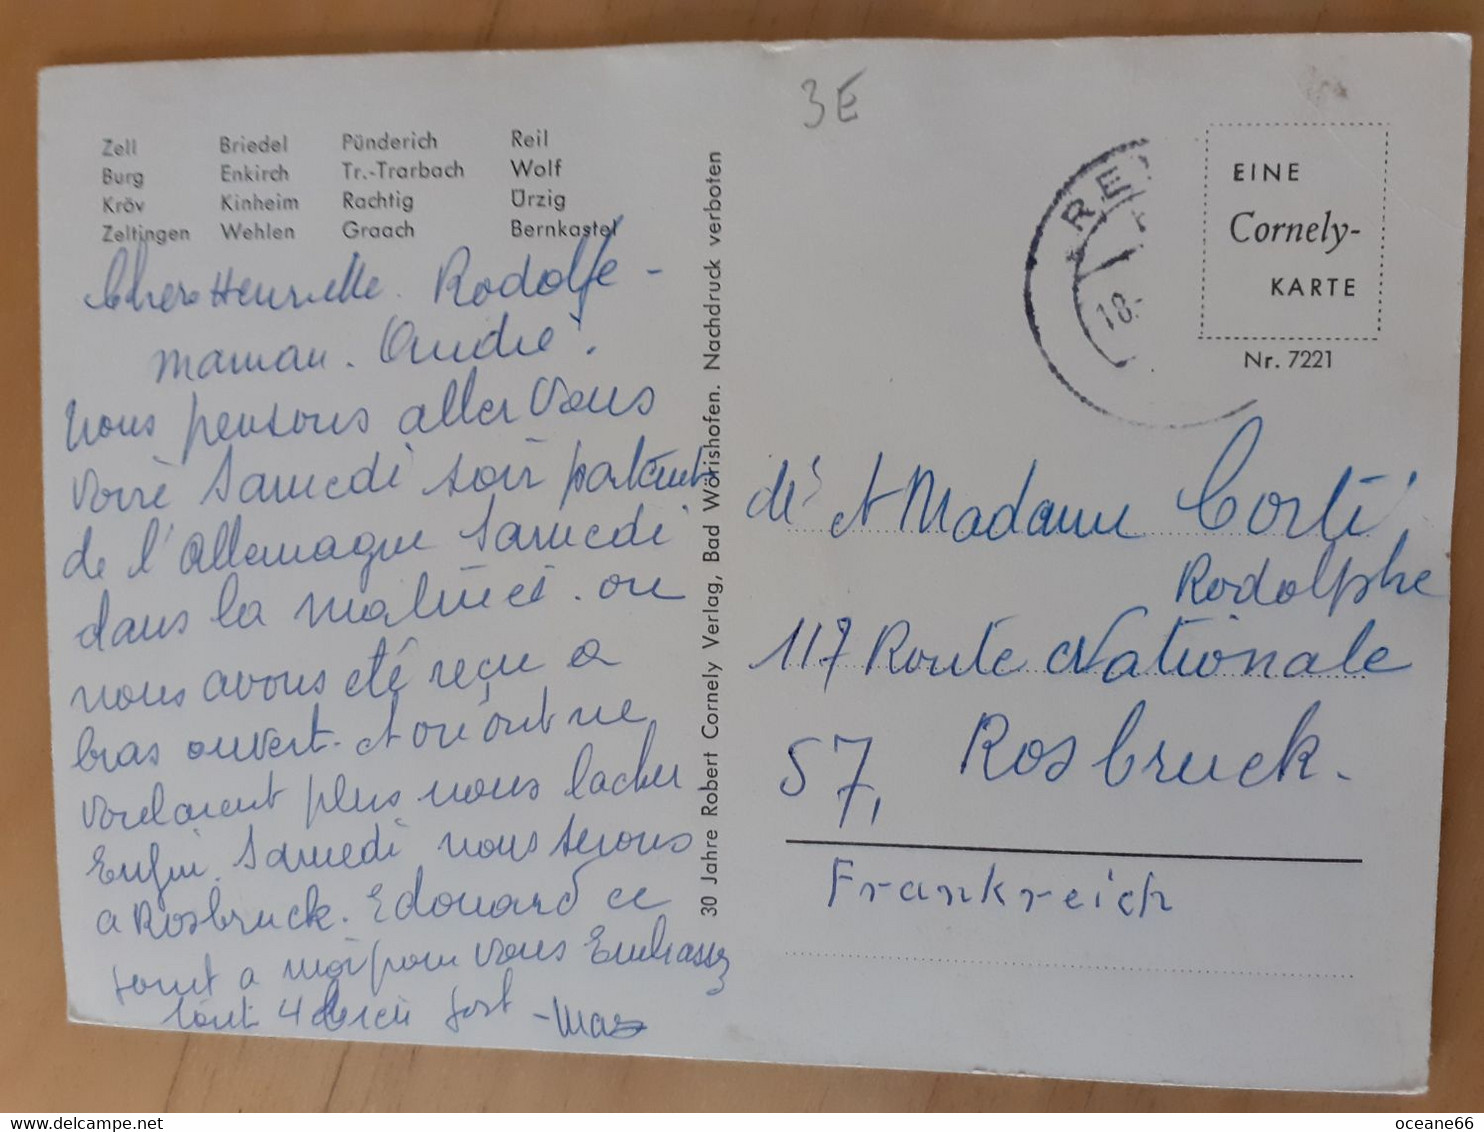 Zell Briedel Pünderich Reil
Burg Enkirch Tr.-Trarbach Wolf
Kröv Kinheim Rachtig Ürzig
Zeltingen Wehlen Graach Bernkastel
Chers Henriette. Rodolfe -
maman. Andre!
Nous pensons aller vous
voire Samedi soir partent
de l'Allemagne Samedi
dans la matineé. on
nous avons eté reçu a
bras ouvert. et on ont ne
voulaient plus nous lacher
Enfin. Samedi nous serons
a Rosbruck. Edouard ce
joint a moi pour vous Embrassez
tout 4 bien fort -
30 Jahre Robert Cornely Verlag, Bad Wörishofen. Nachdruck verboten
3E
RE
18.-
EINE
Cornely-
KARTE
Nr. 7221
et Madame Corti
Rodolphe
117 Route Nationale
57, Rosbruck.
Frankreich
oceane66